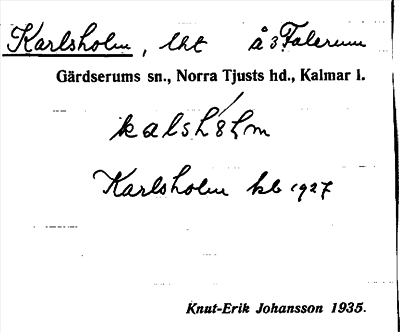 Karlsholm, lht å 3 Falerum
Gärdserums sn., Norra Tjusts hd., Kalmar l.
kalshɵ́lm
Karlsholm kb 1927
Knut-Erik Johansson 1935.